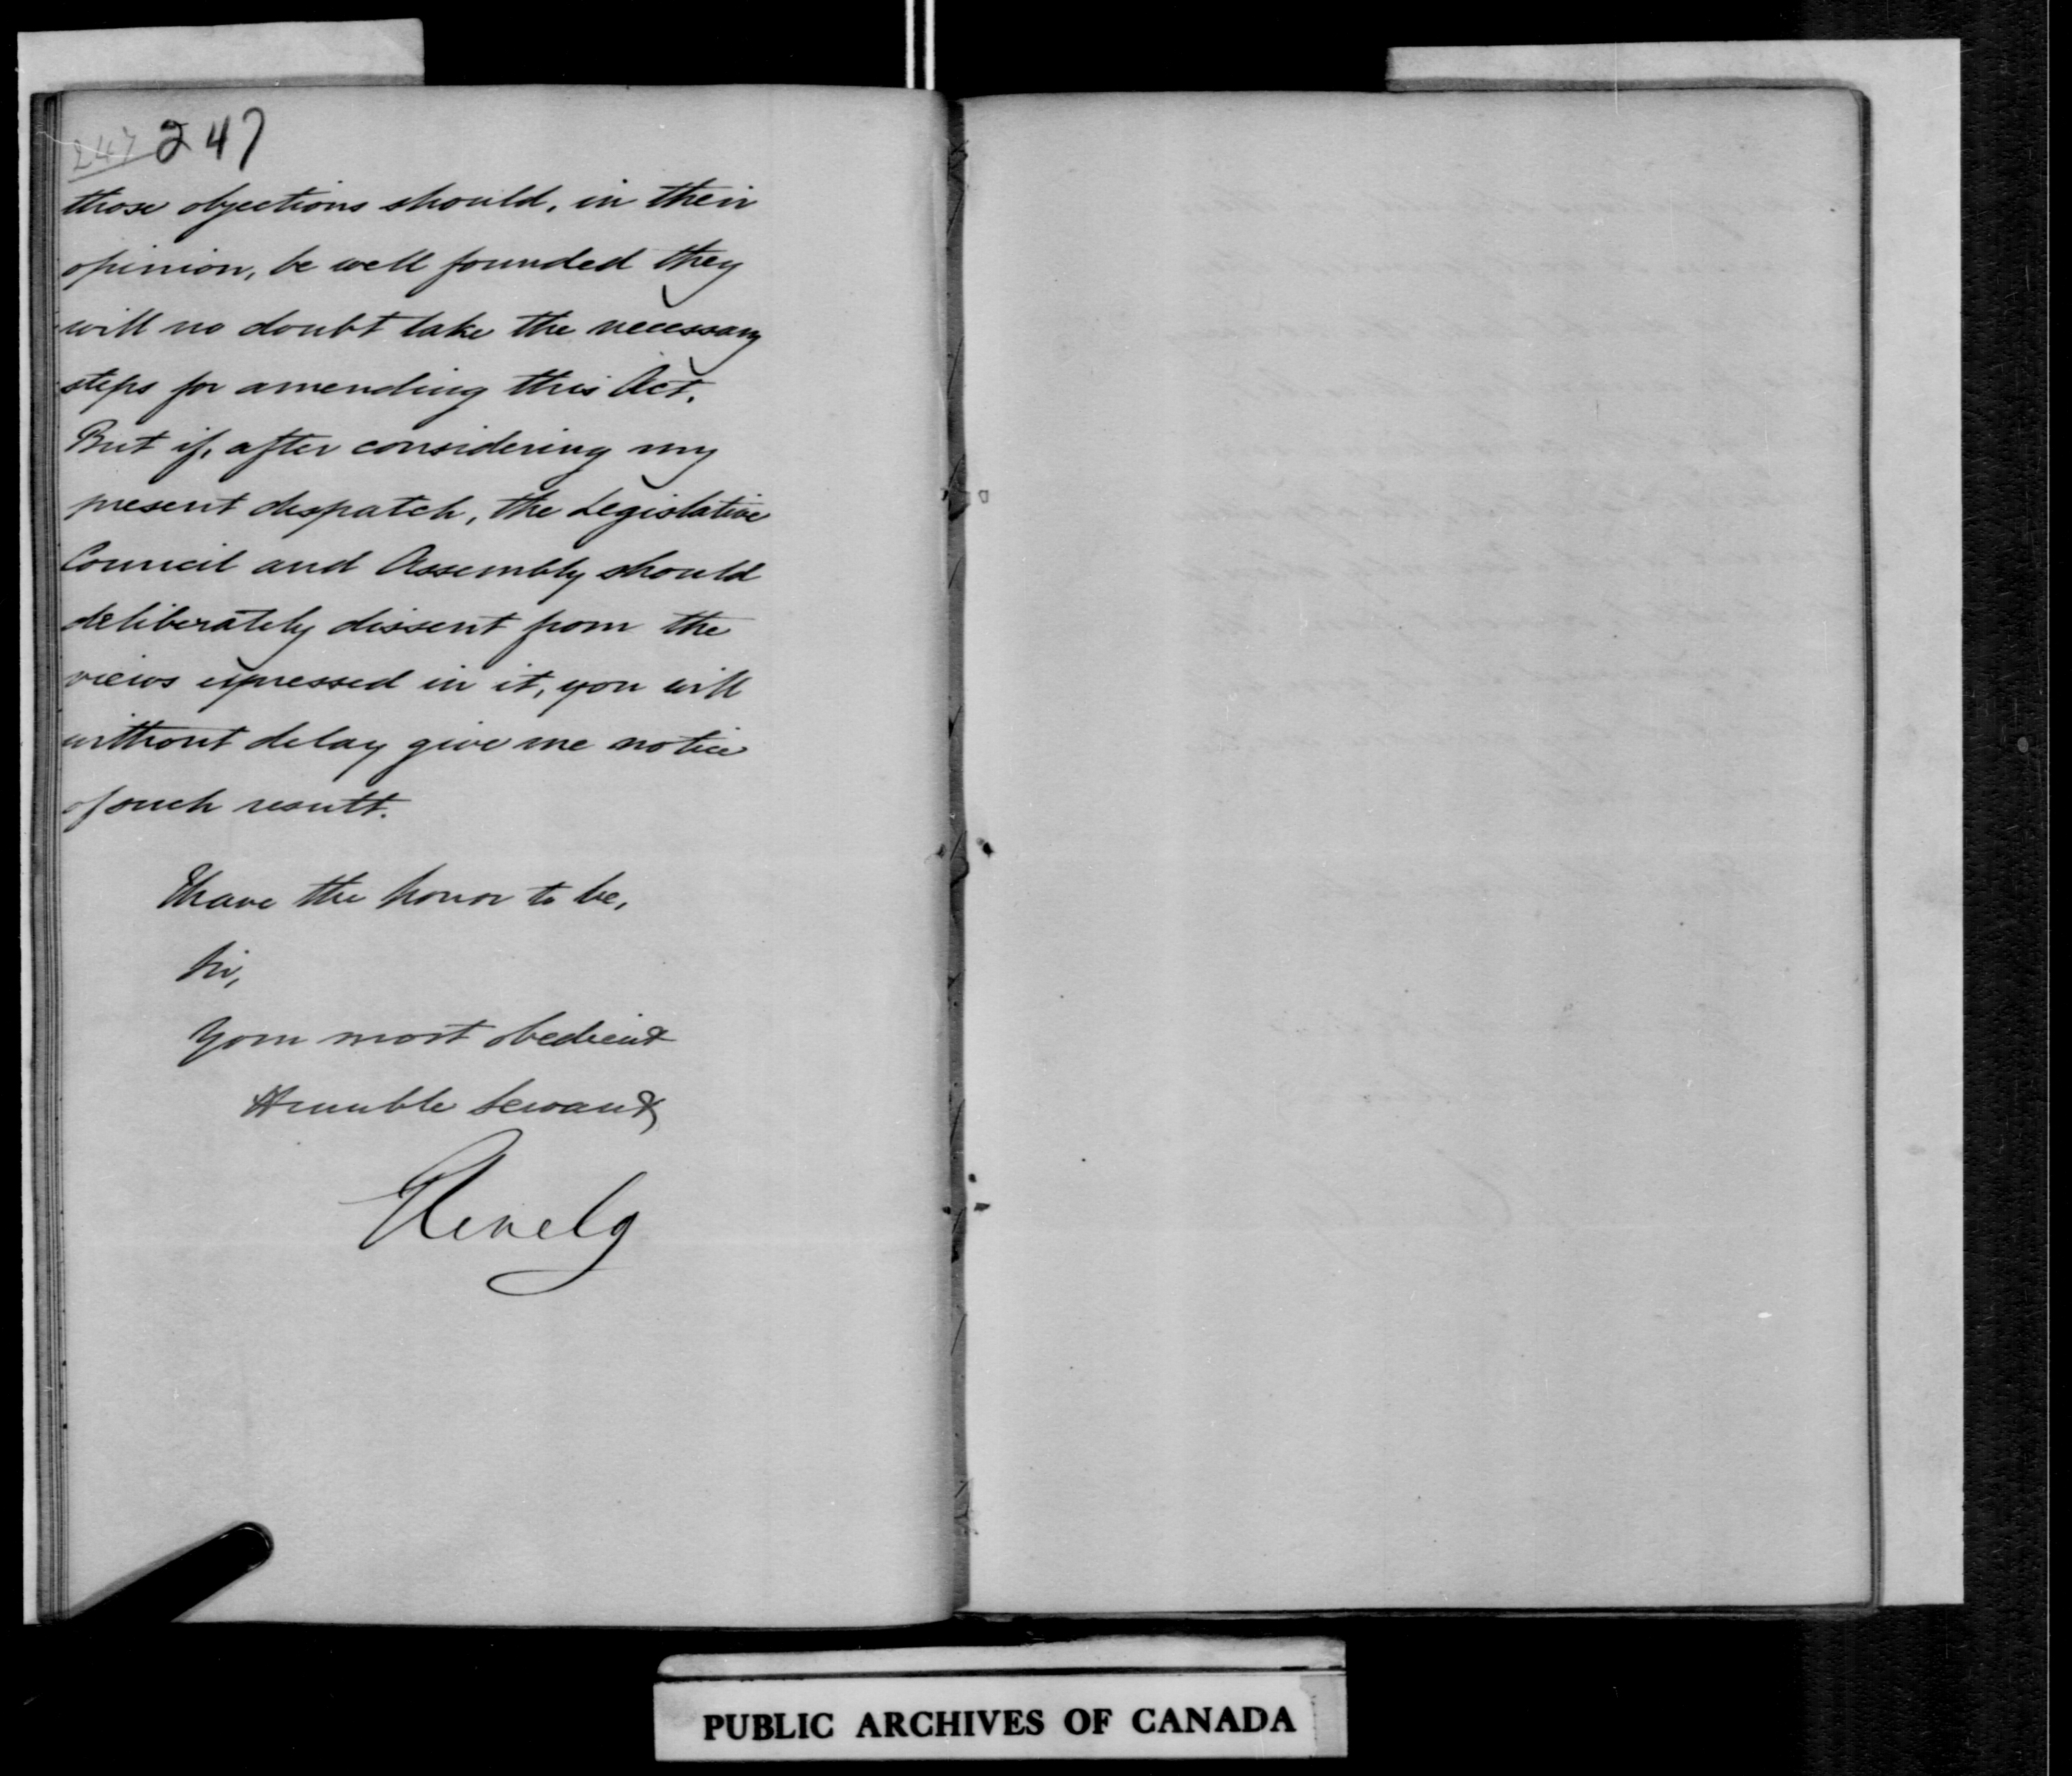 247 247
those objections should, in their
opinion, be well founded they
will no doubt take the necessary
steps for amending this Act.
But if, after considering my
present dispatch, the Legislative
Council and Assembly should
deliberately dissent from the
views expressed in it, you will
without delay give me notice
of such result.
I have the honor to be,
Sir,
Your most obedient
Humble Servant
Glenelg
PUBLIC ARCHIVES OF CANADA